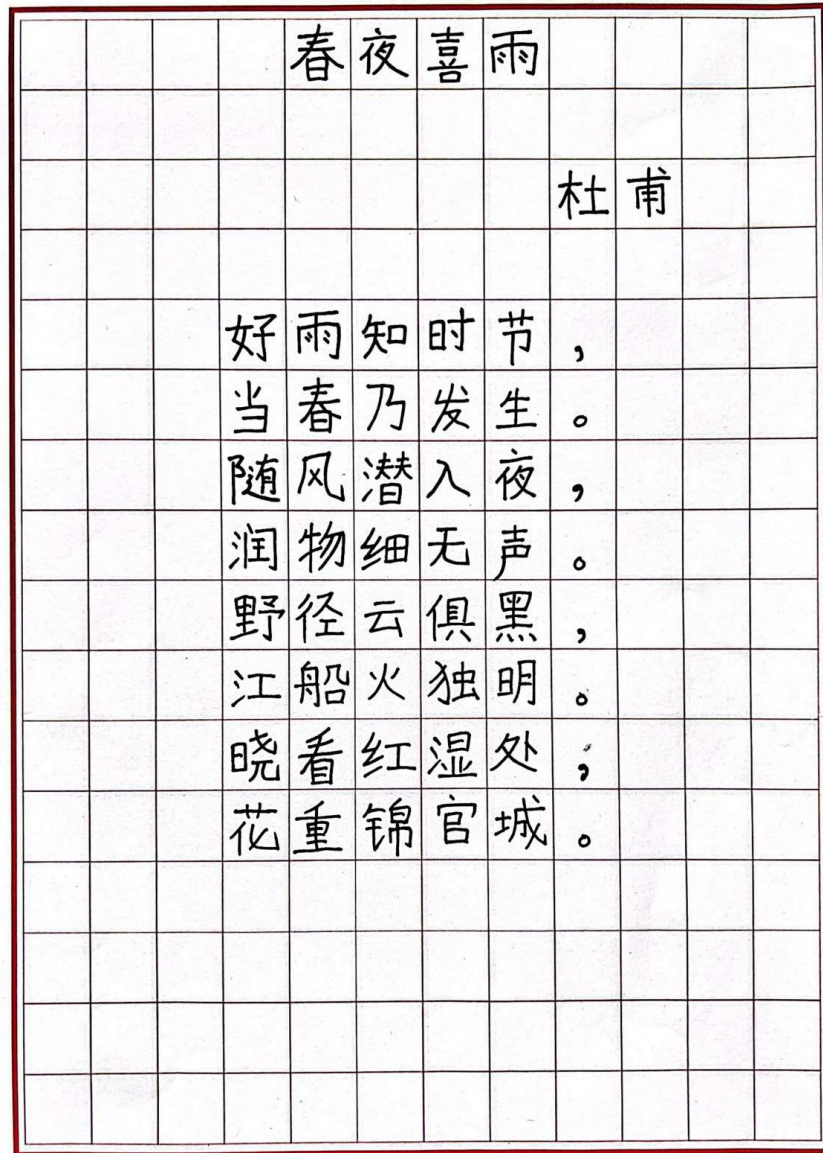 春夜喜雨
杜甫
好雨知时节，
当春乃发生。
随风潜入夜，
润物细无声。
野径云俱黑，
江船火独明。
晓看红湿处，
花重锦官城。